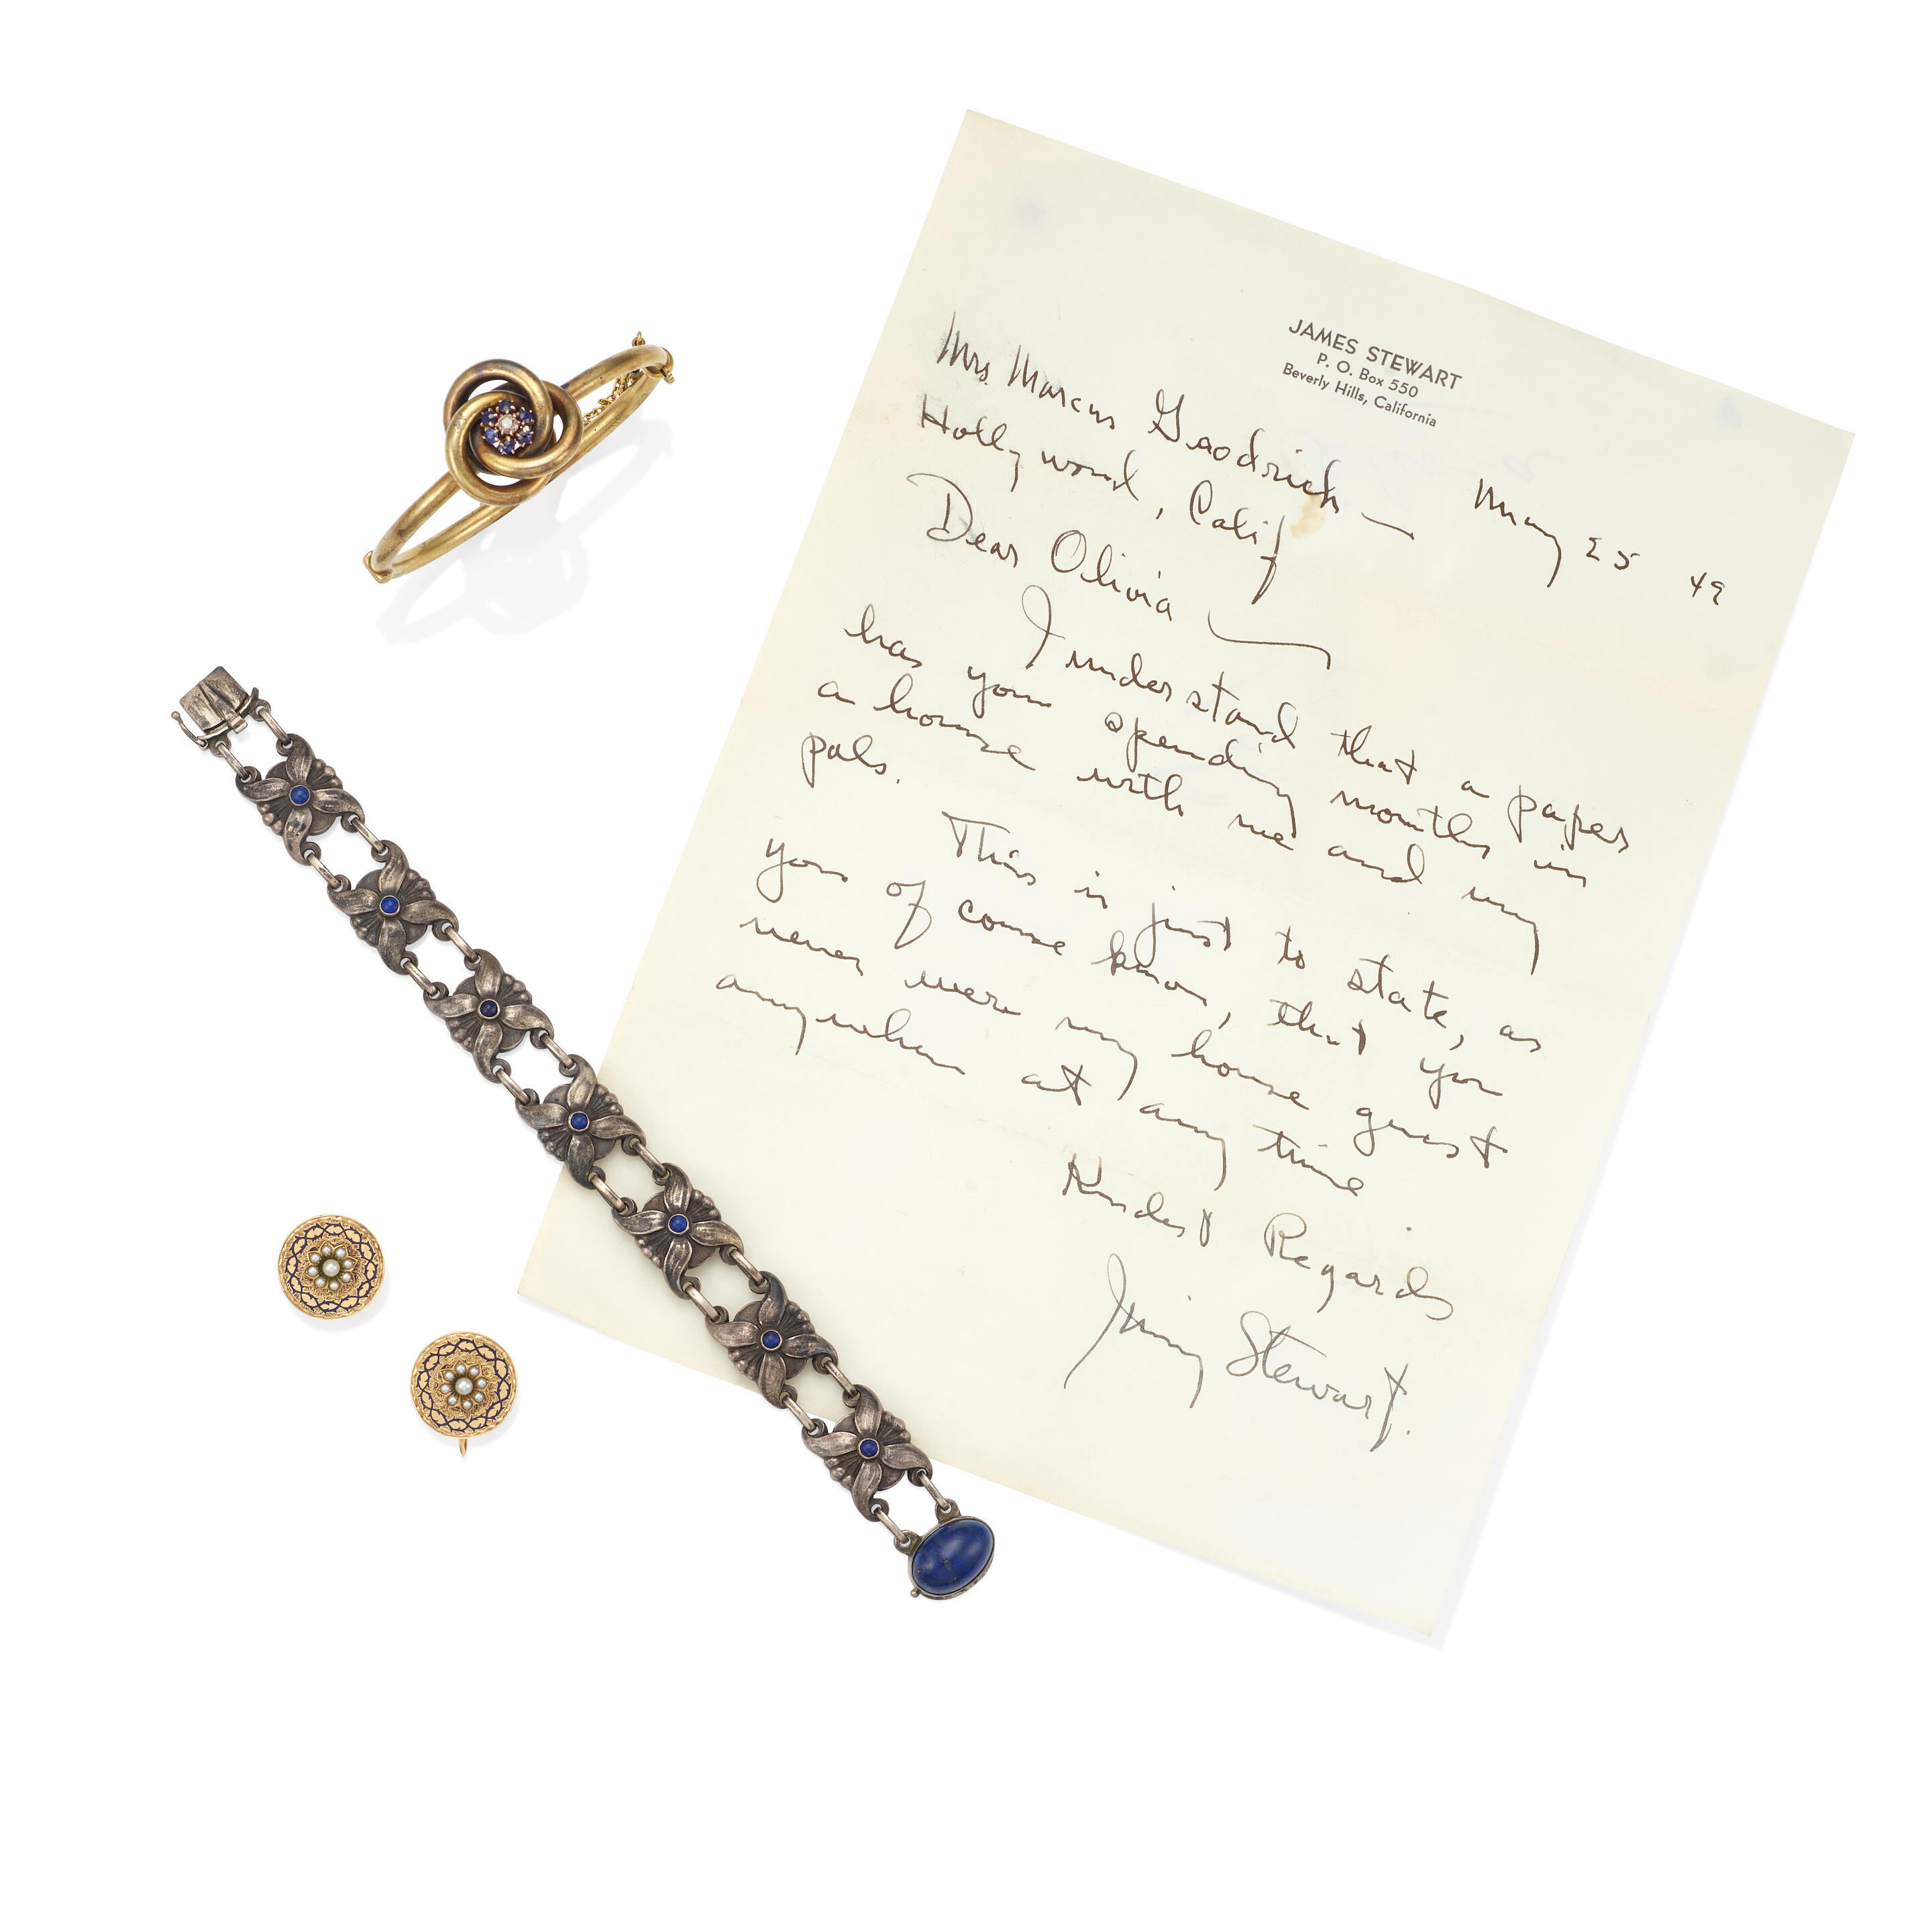 JAMES STEWART
P. O. Box 550
Beverly Hills, California
Mrs. Marcus Goodrich — May 25 49
Hollywood, Calif
Dear Olivia —
I understand that a paper
has you spending months in
a house with me and my
pals.
This is just to state, as
you of course know, that you
never were my house guest
anywhere at any time
Kindest Regards
Jimmy Stewart.